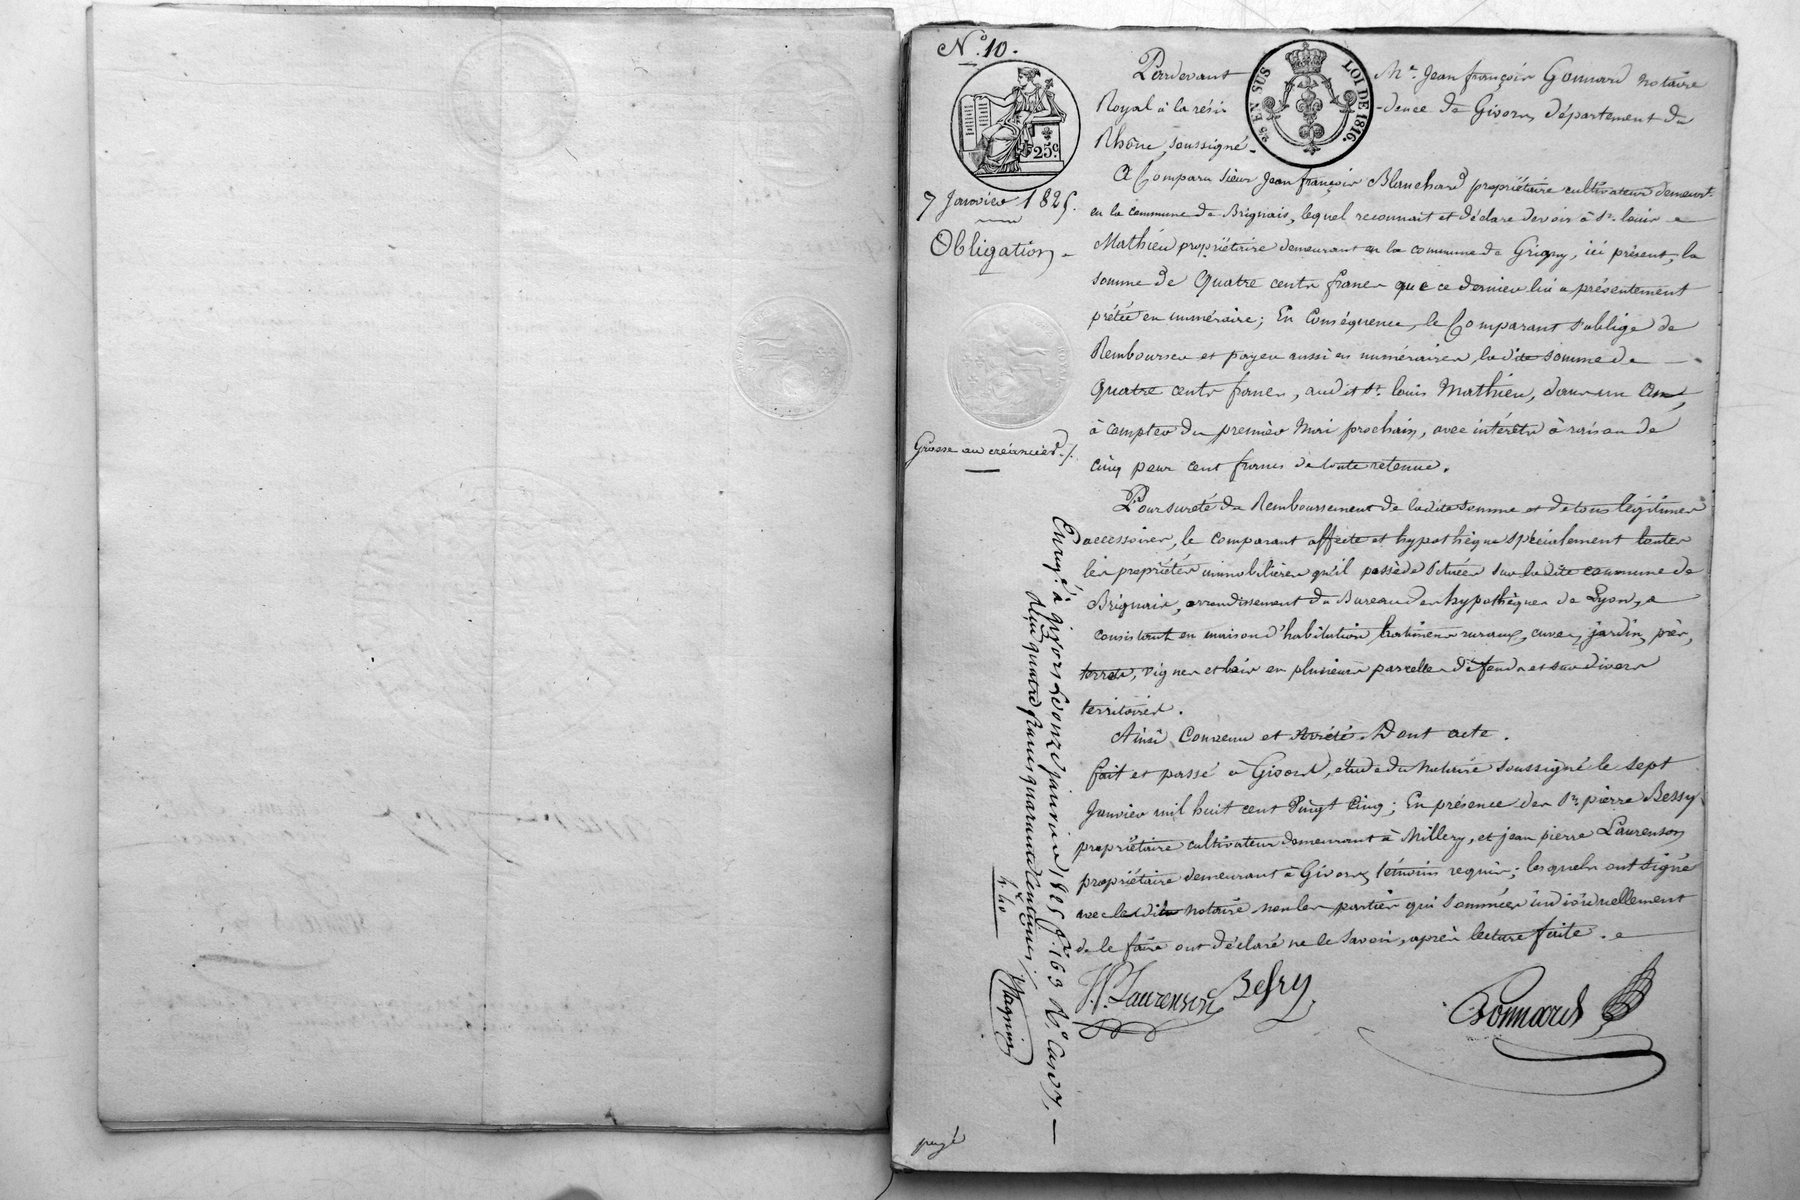 N.° 10.
25 EN SUS
LOI DE 1816.
25c
7 Janvier 1825.
Obligation
Grosse au créancier ./.
Pardevant Me. Jean françois Gonnard notaire
Royal à la rési-dence de Givors, département du
Rhône, soussigné.
A Comparu sieur Jean françois Blanchard propriétaire cultivateur demeurt.
en la commune de Brignais, lequel reconnait et déclare devoir à Sr. louis
Mathieu propriétaire demeurant en la commune de Grigny, ici présent, la
somme de Quatre cents francs que ce dernier lui a présentement
prétée en numéraire; En Conséquence, le Comparant s'oblige de
Rembourser et payer aussi en numéraire, la dite somme de
Quatre cents francs, audit Sr. louis Mathieu, dans un An,
à compter du premier Mai prochain, avec intérêts à raison de
cinq pour cent francs de toute retenue.
Pour sureté du Remboursement de la dite somme et de tous légitimes
accessoires, le comparant affecte et hypothèque spécialement toutes
les propriétés immobilières qu'il possède situées sur la dite commune de
Brignais, arrondissement du Bureau des hypothèques de Lyon,
consistant en maison d'habitation, batimens ruraux, cuves, jardin, prés,
terres, vignes et bois en plusieurs parcelles de fonds et sur divers
territoires.
Ainsi Convenu et Arrêté. Dont acte.
fait et passé à Givors, étude du Notaire soussigné le sept
Janvier mil huit cent Vingt Cinq; En présence des Srs. pierre Bessy
propriétaire cultivateur demeurant à Millery, et jean pierre Laurenson
propriétaire demeurant à Givors, témoins requis; lesquels ont signé
avec le dit notaire non les parties qui sommées individuellement
de le faire ont déclaré ne le savoir, après lecture faite.
J.P. Laurenson Bessy
Gonnard
Enregé. à givors le onze janvier 1825 f° 163 Ro. Case 7,
reçu quatre francs quarante centimes
4. 40
pagé